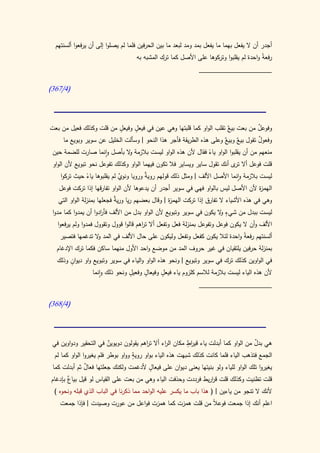 أجدر أن لا يفعل بهما ما يفعل بمد ومد لبعد ما بين الحرفين فلما لم يصلوا إلى أن يرفعوا ألسنتهم
رفعةً واحدة لم يقلبوا وتركوها على الأصل كما ترك المشبه به
(367/4)
وفوعلٌ من بعت بيعٌ تقلب الواو كما قلبتها وهي عين في فيعلٍ وفيعلٍ من قلت وكذلك فعيل من بعت
وفعولٌ تقول بيعٌ وبيعٌ وعلى هذه الطريقة فأجر هذا النحو | وسألت الخليل عن سوير وبويع ما
منعهم من أن يقلبوا الواو ياءً فقال لأن هذه الواو ليست بلازمةٍ ولا بأصلٍ وإنما صارت للضمة حين
قلت فوعل ألا ترى أنك تقول ساير ويساير فلا تكون فيهما الواو وكذلك تفوعل نحو تبويع لأن الواو
ليست بلازمةٍ وإنما الأصل الألف | ومثل ذلك قولهم رويةٌ ورويا ونويٌ لم يقلبوها ياءً حيث تركوا
الهمزة لأن الأصل ليس بالواو فهي في سوير أجدر أن يدعوها لأن الواو تفارقها إذا تركت فوعل
وهي في هذه الأشياء لا تفارق إذا تركت الهمزة | وقال بعضهم ريا وريةٌ فجعلها بمنزلة الواو التي
ليست ببدل من شيءٍ ولا يكون في سوير وتبويع لأن الواو بدل من الألف فأرادوا أن يمدوا كما مدوا
الألف وأن لا يكون فوعل وتفوعل بمنزلة فعل وتفعل ألا تراهم قالوا قوول وتقوول فمدوا ولم يرفعوا
ألسنتهم رفعةً واحدة لئلا يكون كفعل وتفعل وليكون على حال الألف في المد ولا تدغمها فتصير
بمنزلة حرفين يلتقيان في غير حروف المد من موضع واحد الأول منهما ساكن فكما ترك الإدغام
في الواوين كذلك ترك في سوير وتبويع | ونحو هذه الواو والياء في سوير وتبويع واو ديوانٍ وذلك
لأن هذه الياء ليست بلازمة للاسم كلزوم ياء فيعلٍ وفيعالٍ وفعيلٍ ونحو ذلك وإنما
(368/4)
هي بدلٌ من الواو كما أبدلت ياء قيراطٍ مكان الراء ألا تراهم يقولون دويوينٌ في التحقير ودواوين في
الجمع فتذهب الياء فلما كانت كذلك شبهت هذه الياء بواو رويةٍ وواو بوطر فلم يغيروا الواو كما لم
يغيروا تلك الواو للياء ولو بنيتها يعنى ديوان على فيعالٍ لأدغمت ولكنك جعلتها فعالٌ ثم أبدلت كما
قلت تظنيت وكذلك قلت قراريط فرددت وحذفت الياء وهي من بعت على القياس لو قيل بياعٌ بإدغام
لأنك لا تنجو من ياءين | ( هذا باب ما يكسر عليه الواحد مما ذكرنا في الباب الذي قبله ونحوه )
اعلم أنك إذا جمعت فوعلاً من قلت همزت كما همزت فواعل من عورت وصيدت | فإذا جمعت